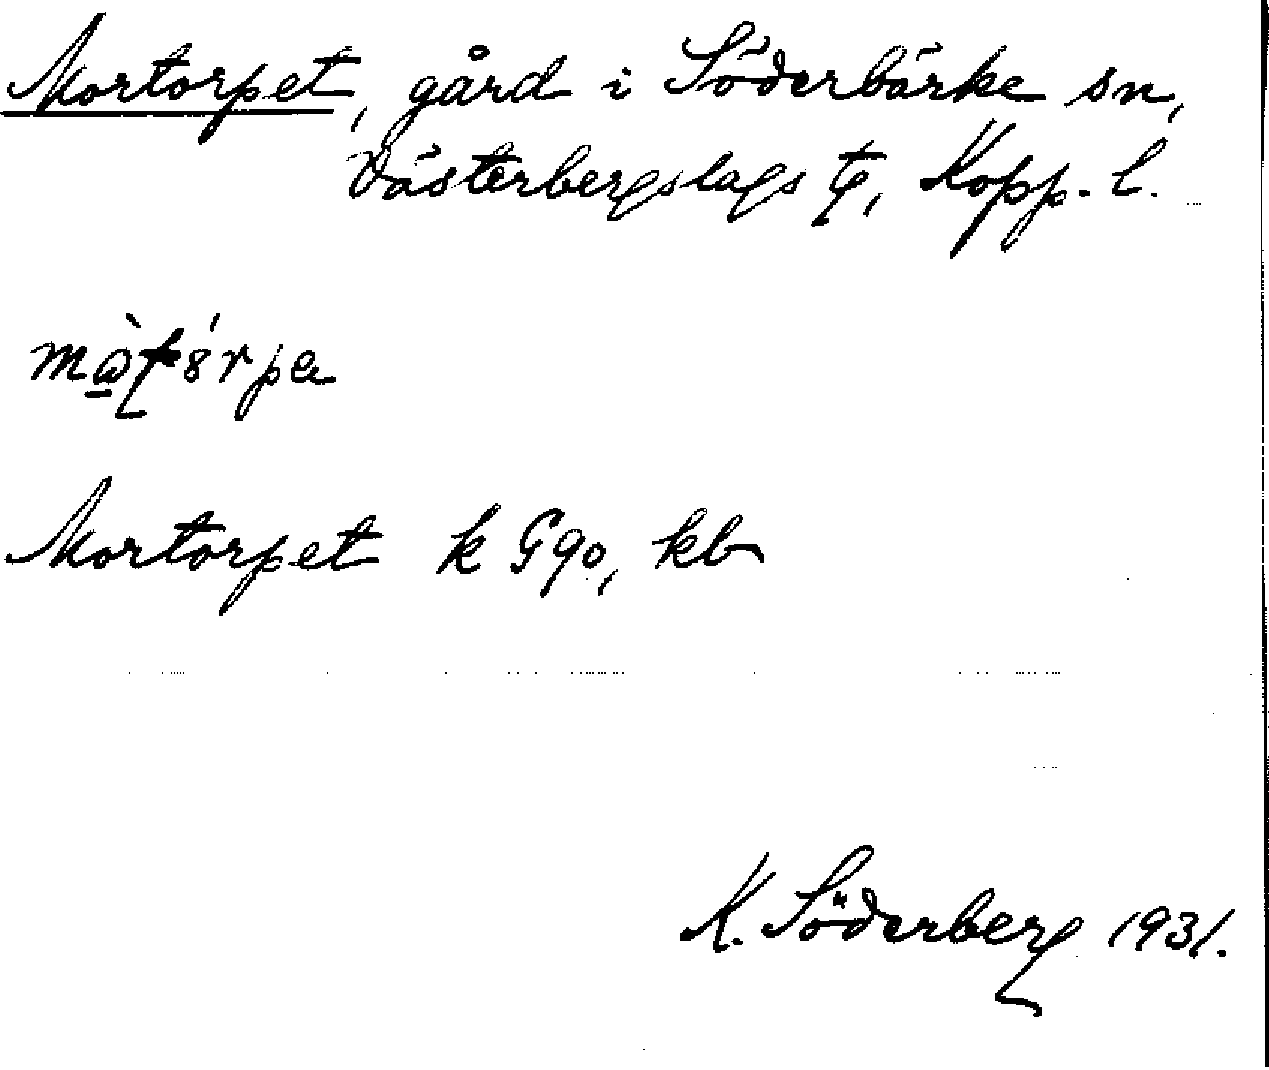 Mortorpet, gård i Söderbärke sn,
Västerbergslags tg, Kopp. l.
Mortorpet k G90, kb
K. Söderberg 1931.